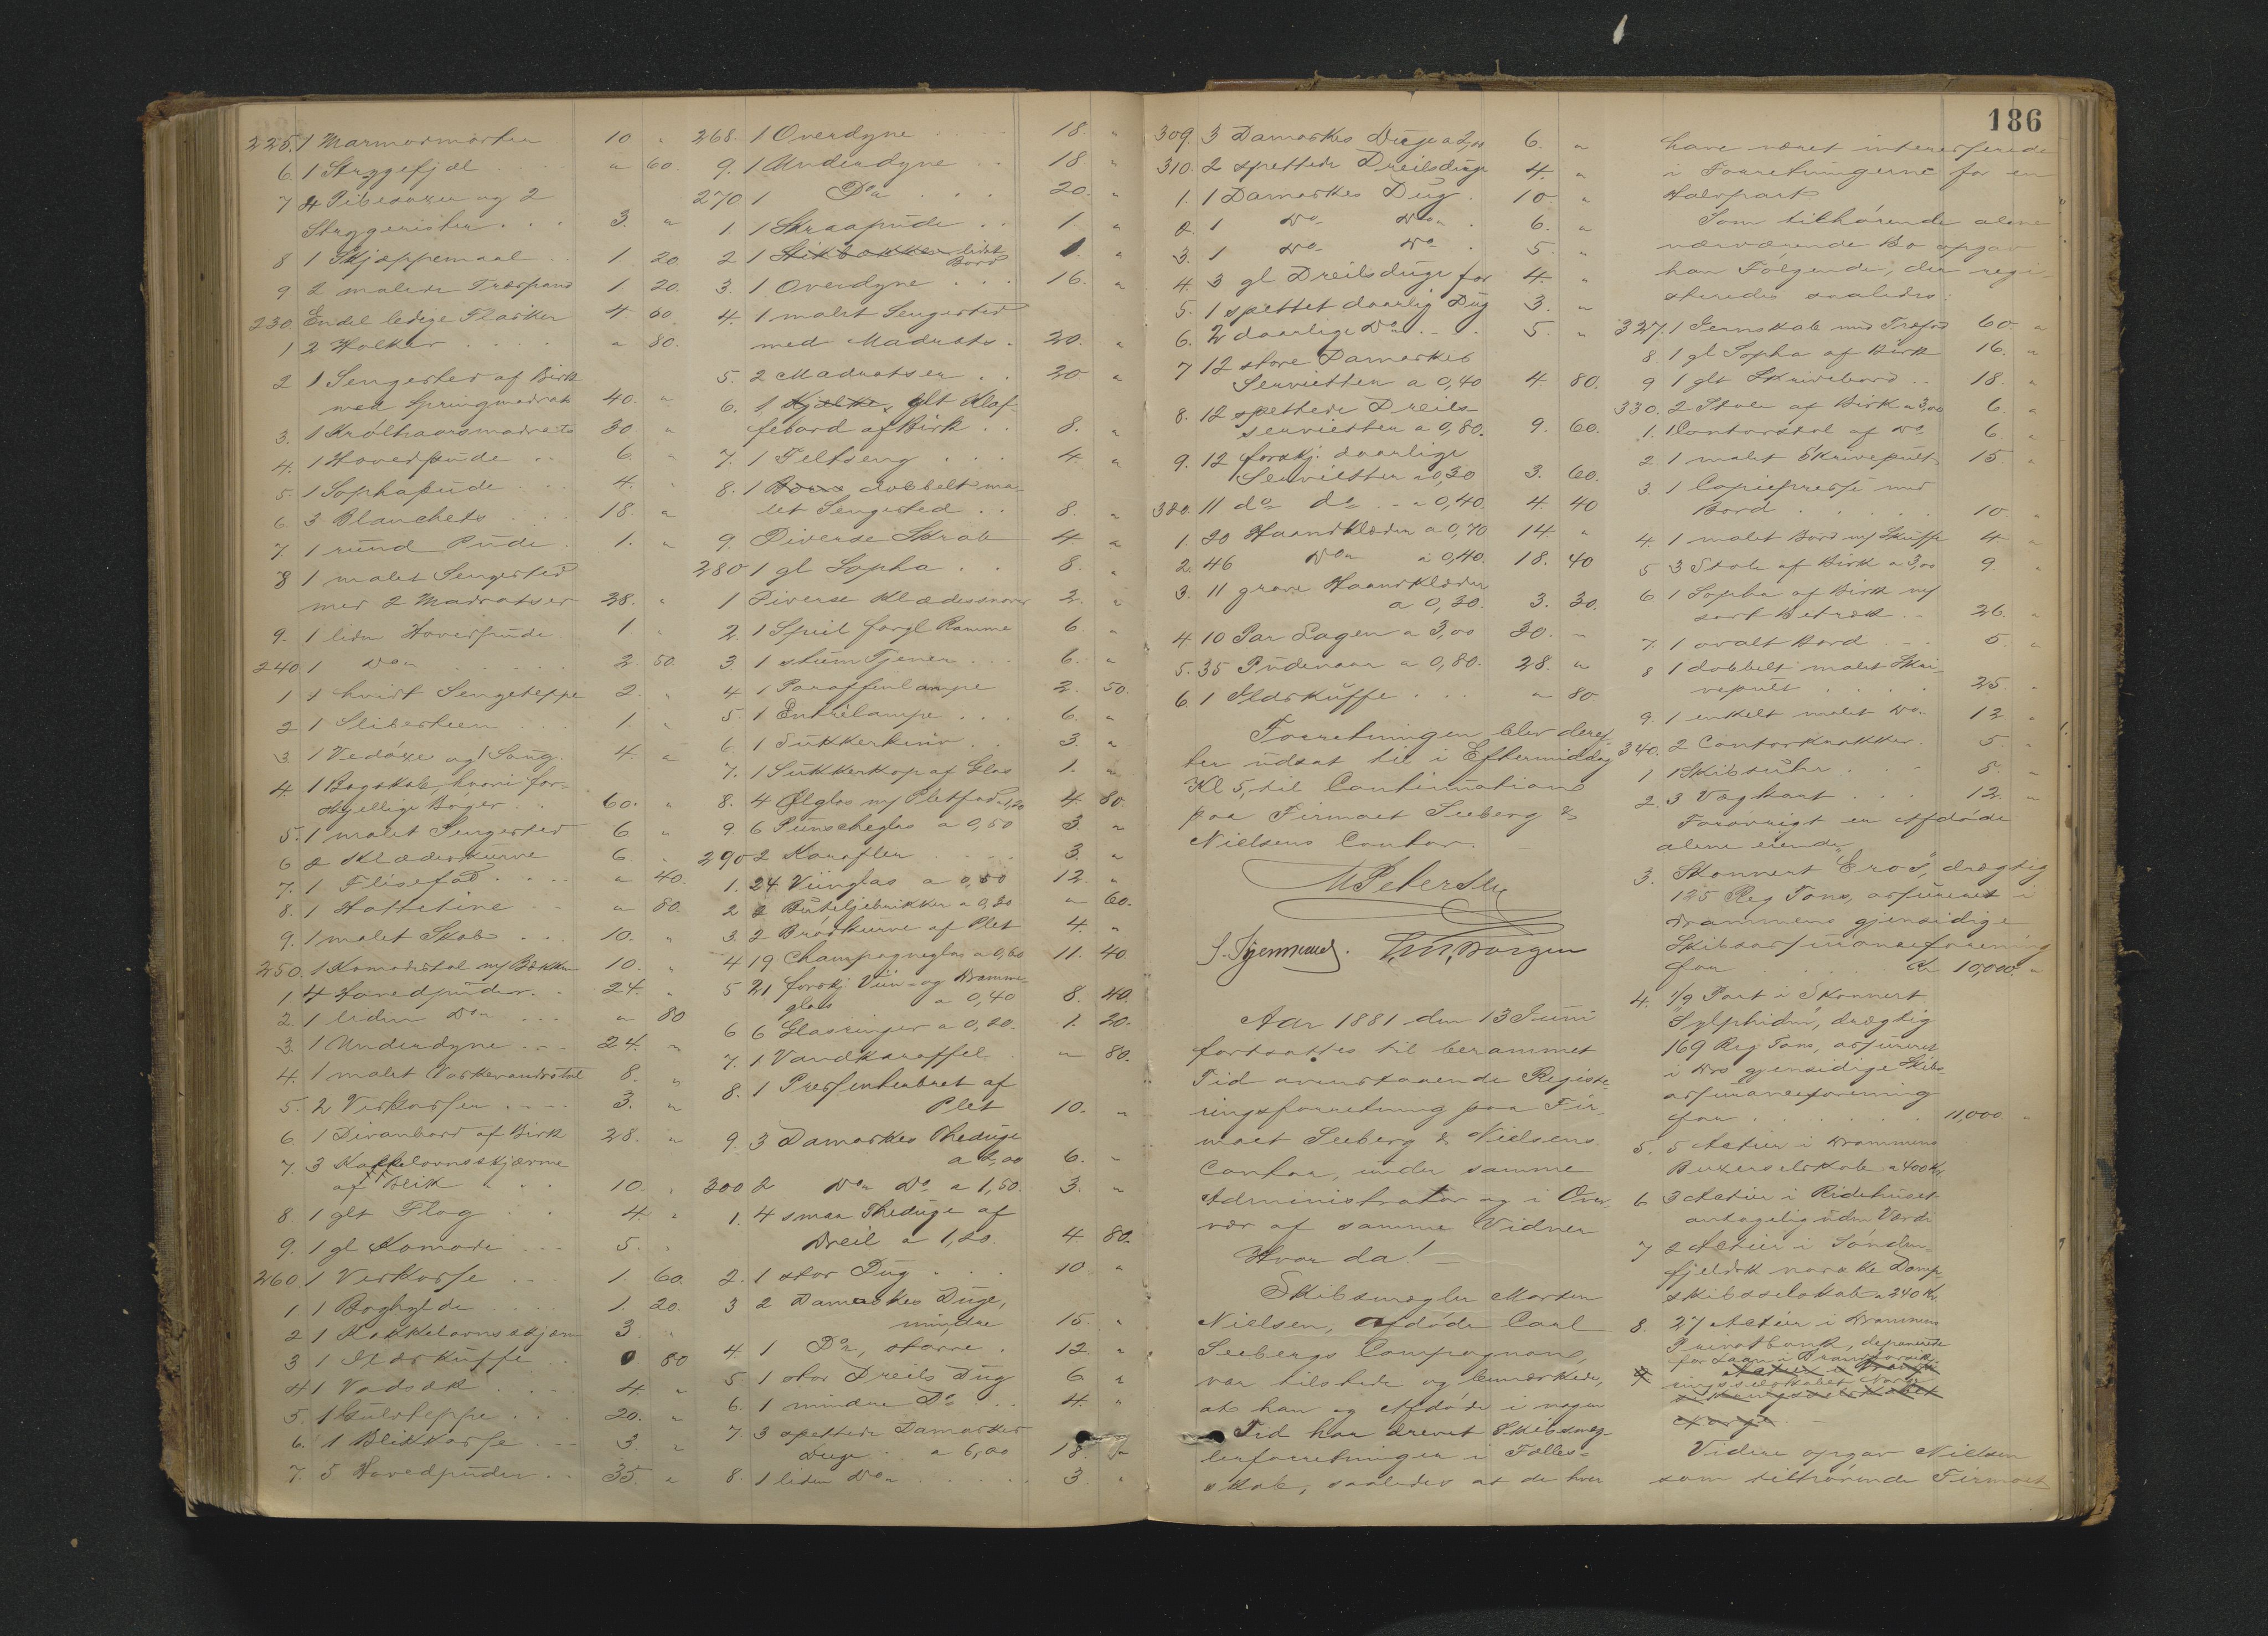 225. 1 Marmormorter 10. "
6. 1 Strygefjæl " 60.
7 4 Pibesaxer og 2
Strygerister . . . 3. "
8 1 Skjæppemaal . . 1. 20
9 2 malede Træspand 1. 20.
230. Endel ledige Flasker 4. 60
1 2 Holker . . . . " 80.
2 1 Sengested af Birk
med Springmadrats 40. "
3. 1 Krølhaarsmadrats 30 "
4. 1 Hovedpude . . 6. "
5. 1 Sophapude . . . 4. "
6. 3 Blanchets . . . 18. "
7. 1 rund Pude . 1. "
8 1 malet Sengested
med 2 Madratser 28. "
9. 1 liden Hovedpude 1. "
240 1 Do . . . . . 2. 50.
1 1 hvidt Sengeteppe 2. "
2 1 Slibesteen . . . 1. "
3 1 Vedøxe og 1 Saug. 4. "
4. 1 Bogskab, hvori for-
skjellige Bøger . . 60. "
5. 1 malet Sengested 6 "
6 2 Klædeskurve 6. "
7. 1 Flisefad . . . . " 40.
8. 1 Hattetine . . " 80.
9. 1 malet Skab . . . 10. "
250. 1 Komodestol m/ Bækken 10. "
1 4 Hovedpuder . . 24. "
2. 1 liden Do . . . " 80
3. 1 Underdyne . . . 24. "
4. 1 malet Vaskevandsstol 8. "
5. 2 Vedkasser . . . . 3. "
6. 1 Divanbord af Birk 28. "
7. 3 Kakkelovnsskjærme
af Blik . . . 10. "
8. 1 glt Flag . . . 4. "
9. 1 gl Komode . . . 5. "
260 1 Vedkasse . . . 1. 60.
1 1 Boghylde . . . . 1. 20.
2 1 Kakkelovnsskjærm 3. "
3 1 Ildskuffe . . 0 80
4 1 Vadsæk . . . . 4. "
5. 1 Gulvteppe . . . 20. "
6. 1 Blikkasse . . . 3. "
7. 5 Hovedpuder . . 35. "
268. 1 Overdyne . . . 18. "
9. 1 Underdyne . . 18. "
270 1 Do . . . 20. "
1 1 Skraapude . . 1. "
2 1 Stikbækken lidet
Bord 1. "
3. 1 Overdyne . . . 16. "
4. 1 malet Sengested
med Madrats . 20. "
5. 2 Madratser . . 20 "
6. 1 Kjælke, glt Klaf-
febord af Birk . . 8. "
7. 1 Feltseng . . . 4. "
8. 1 dobbelt ma-
let Sengested . . 8. "
9. Diverse Skrab 4. "
280 1 gl Sopha . . 8. "
1 Diverse Klædessnorer 2. "
2. 1 Speil forgl Ramme 6. "
3 1 stum Tjener . . . 6. "
4 1 Paraffinlampe 2. 50.
5 1 Entrélampe . . . 6. "
6. 1 Sukkerkniv . . 3. "
7. 1 Sukkerkop af Glas 1. "
8. 4 Ølglas m/ Pletfad a 1,20 4. 80.
9. 6 Punscheglas a 0,50 3. "
290 2 Karafler . . . . 3. "
1. 24 Viinglas a 0,50 12. "
2 2 Buteljebrikker a 0,30 " 60.
3. 2 Brødkurve af Plet 4. "
4 19 Champagneglas a 0,60 11. 40.
5 21 forskj. Viin- og Dramme-
glas a 0,40 8. 40.
6 6 Glasringer a 0,20. 1. 20.
7. 1 Vandkaraffel . " 80.
8. 1 Presenterbret af
Plet 10. "
9. 3 Damaskes Theduge
a 2,00 6. "
300 2 Do Do a 1,50. 3. "
1. 4 smaa Theduge af
Dreil a 1,20. 4 80.
2. 1 stor Dug . . . 10 "
3 2 Damaskes Duge,
mindre 15. "
4. 1 Do, større . 12. "
5 1 stor Dreils Dug 6 "
6. 1 mindre Do . . 4. "
7. 3 spettede Damaskes
Duge a 6,00 18. "
8. 1 liden Do . . . . . 3. "
186
309. 3 Damaskes Duge a 2,00 6. "
310. 2 spettede Dreilsduge 4. "
1. 1 Damaskes Dug . 10. "
2. 1 Do Do . 6. "
3. 1 Do Do . 5. "
4. 3 gl Dreilsduge for 4. "
5. 1 spettet daarlig Dug 3. "
6. 2 daarlige Do . . . 5. "
7 12 store Damaskes
Servietter a 0,40 4. 80.
8. 12 spettede Dreils-
servietter a 0,80. 9. 60.
9. 12 forskj. daarlige
Servietter a 0,30 3. 60.
320. 11 do do . . a 0,40. 4. 40
1. 20 Haandklæder a 0,70 14 "
2. 46 Do a 0,40. 18. 40
3. 11 grove Haandklæder
a 0,30. 3. 30.
4 10 Par Lagen a 3,00 30. "
5. 35 Pudevaar a 0,80. 28. "
6. 1 Ildskuffe . . . " 80
Forretningen blev deref-
ter udsat til i Eftermiddag
Kl 5, til Continuation
paa Firmaet Seeberg &
Nielsens Contor.
M Petersen
Aar 1881 den 13 Juni
fortsattes til berammet
Tid ovenstaaende Registe-
ringsforretning paa Fir-
maet Seeberg & Nielsens
Contor, under samme
Administrator og i Over-
vær af samme Vidner
Hvor da! —
Skibsmægler Morten
Nielsen, Afdøde Carl
Seebergs Compagnon,
var tilstede og bemærkede,
at han og Afdøde i nogen
Tid har drevet Skibsmæg-
lerforretninger i Fælles-
skab, saaledes at de hver
have været interesserede
i Forretningerne for en
Halvpart
Som tilhørende alene
nærværende Bo opgav
han Følgende, der regi-
steredes saaledes:
327. 1 Jernskab med Træfod 60 "
8. 1 gl Sopha af Birk 16. "
9 1 glt Skrivebord . . 18. "
330. 2 Stole af Birk a 3,00 6. "
1. 1 Contorstol af Do 6. "
2. 1 malet Skrivepult 15 "
3. 1 Copiepresse med
Bord . . . . . 10. "
4. 1 malet Bord m/ Skuffe 4 "
5 3 Stole af Birk a 3,00 9. "
6 1 Sopha af Birk m/
sort Betræk . . 26. "
7. 1 ovalt Bord . . . 5. "
8 1 dobbelt malet Skri-
vepult . . . . 25. "
9. 1 enkelt malet Do. 12 "
340. 2 Contorkrakker . 5 "
1 1 Skibsuhr . . . 8. "
2. 3 Vægkart . . . 12. "
Forøvrigt er Afdøde
alene eiende
3. Skonnert "Eros", drægtig
125 Reg Tons, assureret i
Drammens gjensidige
Skibsassuranceforening
for . . . . . Kr 10,000. "
4. 1/9 Part i Skonnert
"Sylphiden", drægtig
169 Reg Tons, assureret
i Drs gjensidige Skibs-
assuranceforening
for . . . . . . 11,000 "
5. 5 Actier i Drammens
Buxerselskab a 400 Kr
6 3 Actier i Ridehuset
antagelig uden Værdi
7 2 Actier i Sønden-
fjeldsk norske Damp-
skibsselskab a 240 Kr
8. 27 Actier i Drammens
Privatbank, deponerede
Norge
Videre opgav Nielsen
som tilhørende Firmaet